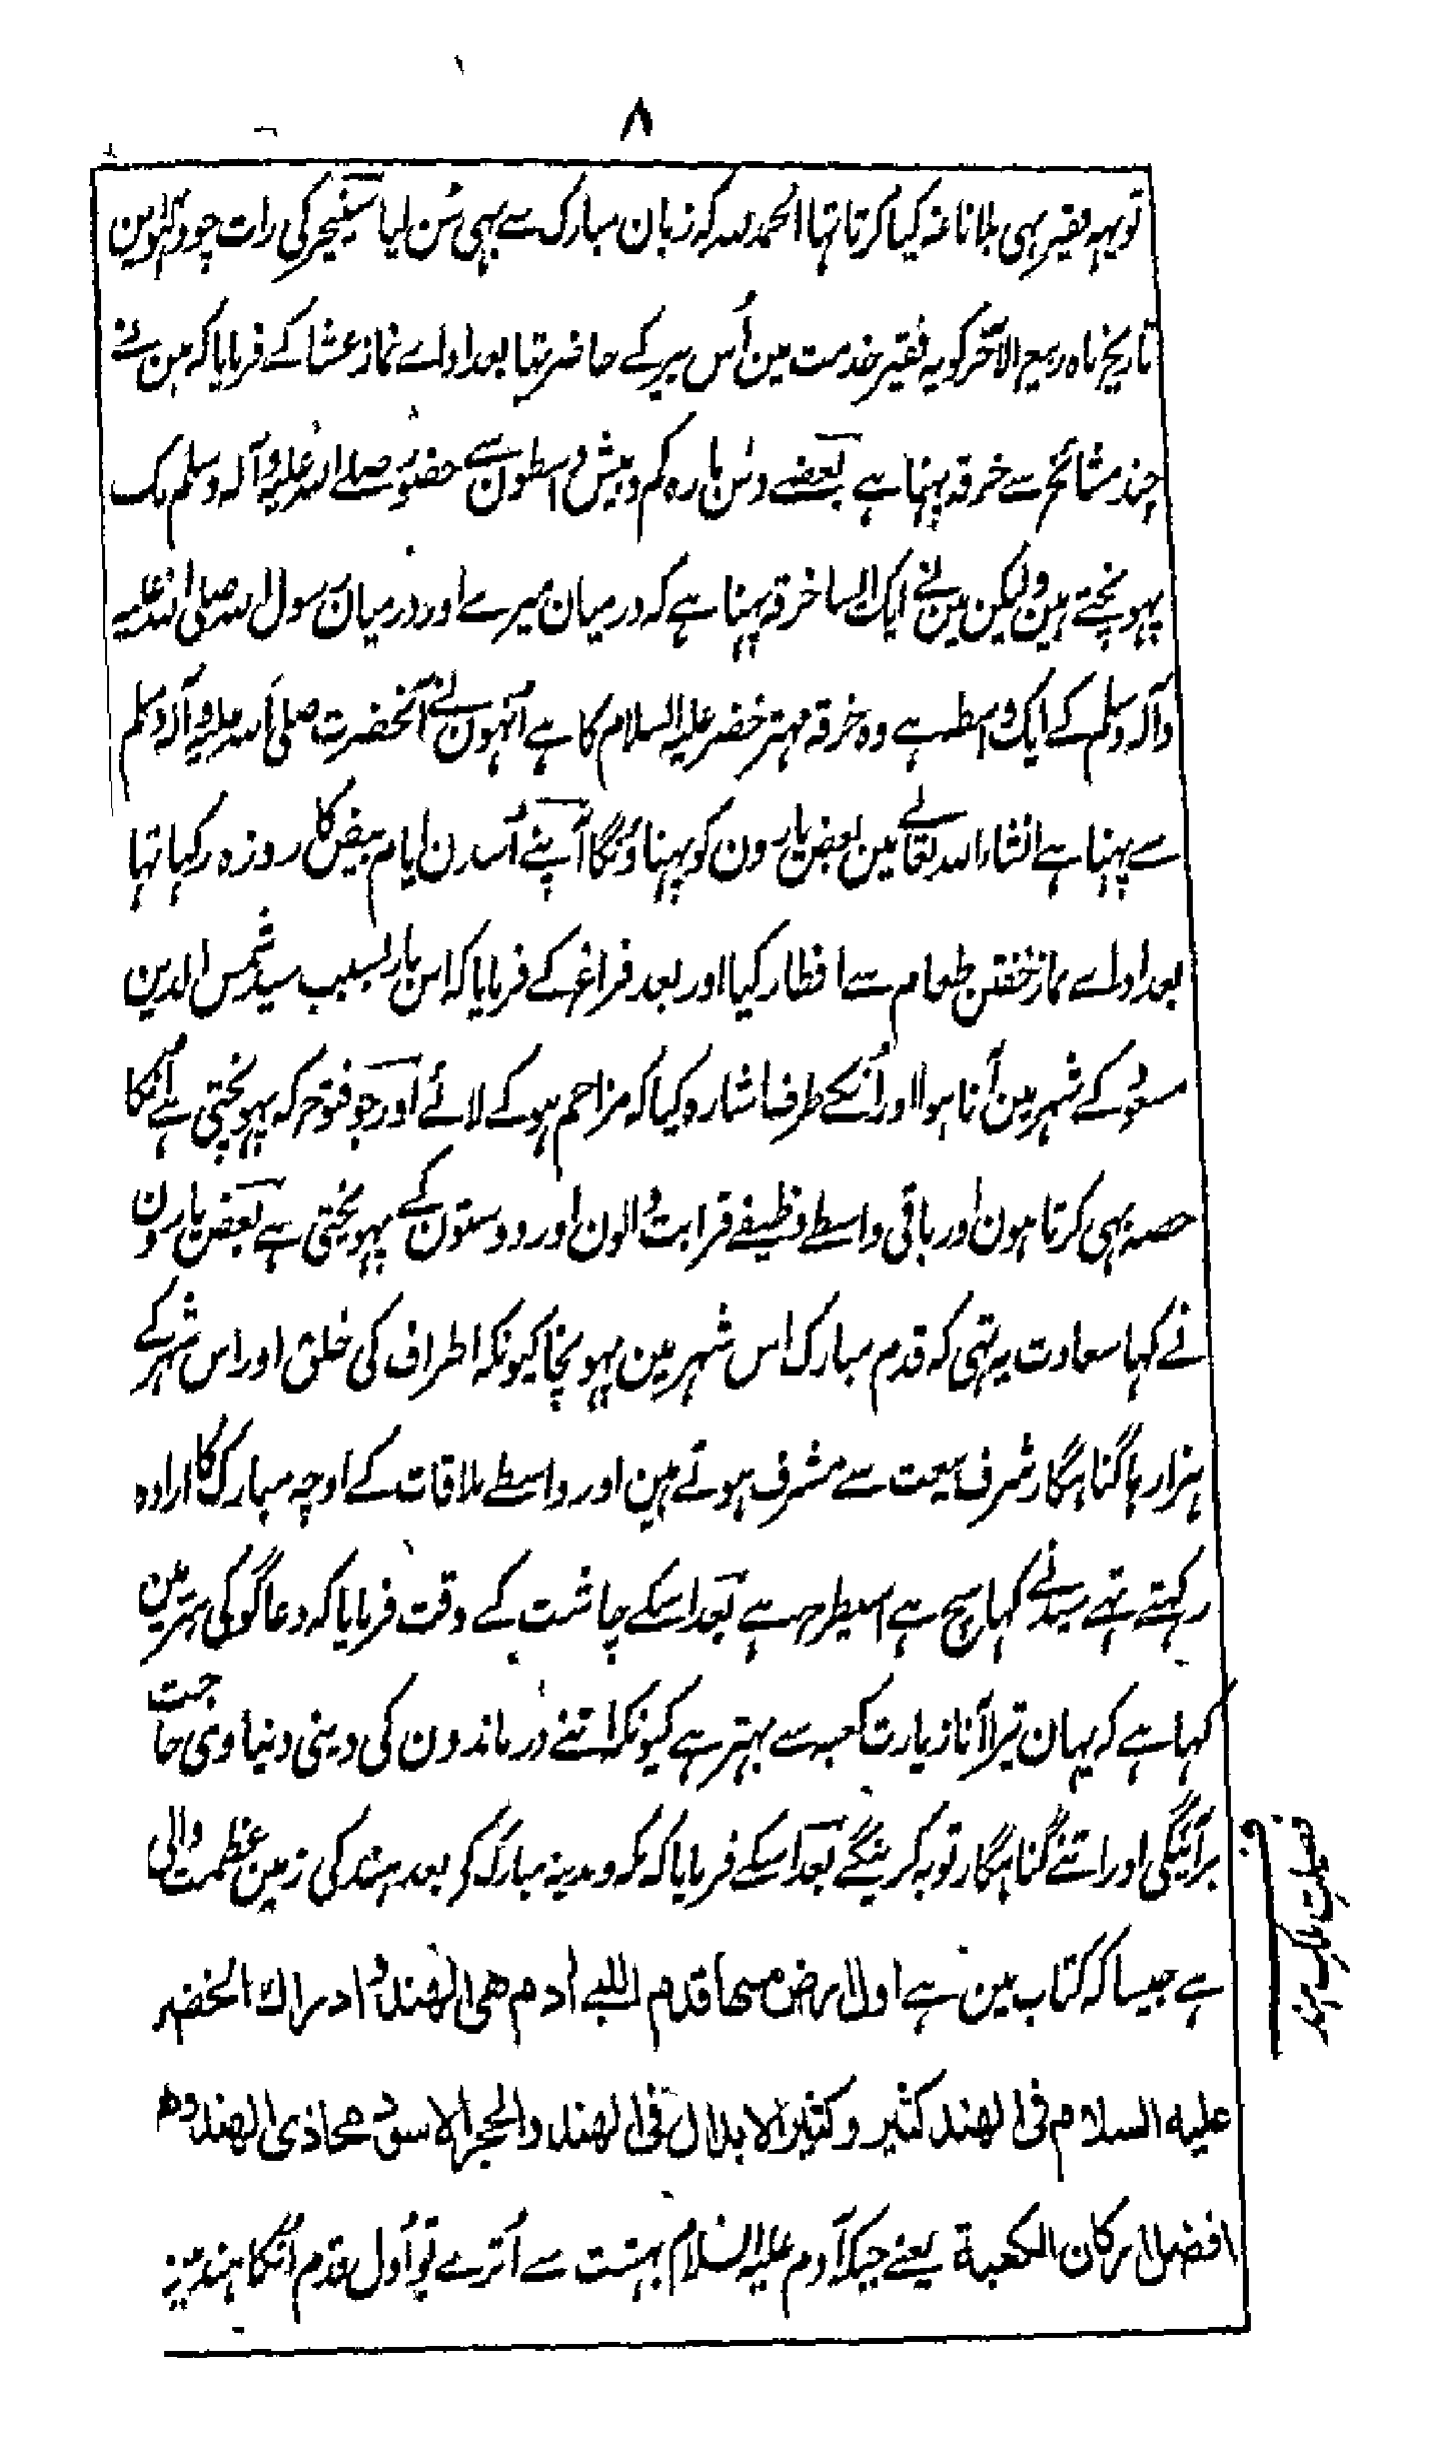 ۸
تو یہہ فقیر بہی بلا ناغہ کیا کرتا تہا الحمد للہ کہ زبان مبارک سے بہی سُن لیا سنیچر کی رات چودہوین
تاریخ ماہ ربیع الآخر کو یہ فقیر خدمت مین اُس پیر کے حاضر تہا بعد اداے نماز عشا کے فرمایا کہ مین نے
چند مشائخ سے خرقہ پہنا ہے بعضے دس بارہ کم و بیش واسطون سے حضور صلے اللہ علیہ وآلہ وسلم تک
پہونچتے ہین ولیکن مین نے ایک ایسا خرقہ پہنا ہے کہ درمیان میرے اور درمیان رسول اللہ صلی اللہ علیہ
وآلہ وسلم کے ایک واسطہ ہے وہ خرقہ مہتر خضر علیہ السلام کا ہے اُنہون نے آنحضرت صلی اللہ علیہ وآلہ وسلم
سے پہنا ہے انشاء اللہ تعالے مین بعض یارون کو پہناؤنگا آپنے اُسدن ایام بیض کا روزہ رکہا تہا
بعد اداے نماز خفتن طعام سے افطار کیا اور بعد فراغ کے فرمایا کہ اس بار بسبب سید شمس الدین
مسعود کے شہر مین آنا ہوا اور اُنکے طرف اشارہ کیا کہ مزاحم ہو کے لائے اور جو فتوح کہ پہونچتی ہے اُنکا
حصہ بہی کرتا ہون اور باقی واسطے وظیفے قرابت والون اور دوستون کے پہونچتی ہے بعض یارون
نے کہا سعادت یہ تہی کہ قدم مبارک اس شہر مین پہونچا کیونکہ اطراف کی خلق اور اس شہر کے
ہزارہا گناہگار شرف بیعت سے مشرف ہوتے ہین اور واسطے ملاقات کے اوچہ مبارک کا ارادہ
رکہتے تہے سید نے کہا سچ ہے اسیطرح ہے بعد اسکے چاشت کے وقت فرمایا کہ دعاگو کی سر مین
کہا ہے کہ یہان تیرا آنا زیارت کعبہ سے بہتر ہے کیونکہ اتنے درماندون کی دینی دنیاوی حاجت
بر آئیگی اور اتنے گناہگار توبہ کرینگے بعد اسکے فرمایا کہ مکہ و مدینہ مبارک کو بعد ہند کی زمین عظمت والی
ہے جیسا کہ کتاب مین ہے اول ارض مسها قدم ادم هی الهند و ادراك الخضر
علیه السلام فی الهند کثیر وکثیر الابدال فی الهند والحجر الاسود محاذی الهند وهو
افضل ارکان الکعبة یعنے جبکہ آدم علیہ السلام بہشت سے اُترے تو اول قدم اُنکا ہند مین